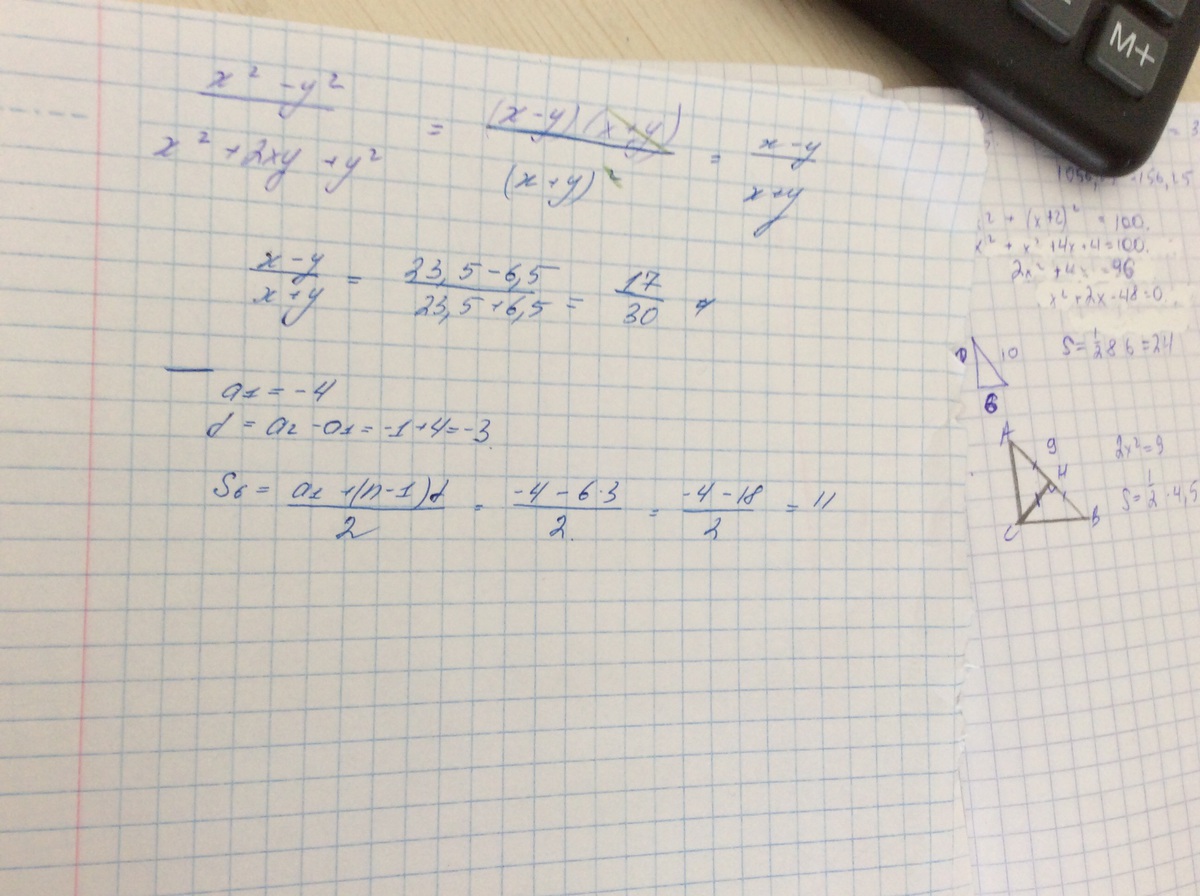 x² - y² / x² + 2xy + y² = (x-y)(x+y) / (x+y)² = x-y / x+y
x-y / x+y = 23,5-6,5 / 23,5+6,5 = 17 / 30
a₁ = -4
d = a₂ - a₁ = -1+4 = -3
S₆ = a₁+(n-1)d / 2 = -4-6·3 / 2 = -4-18 / 2 = 11
M+
= 3
² + (x+2)² = 100.
x² + x² + 4x + 4 = 100.
2x² + 4x = 96
x² + 2x - 48 = 0
10
S = 1/2 8 6 = 24
6
A
9
4
C
B
2x² = 9
S = 1/2 · 4,5